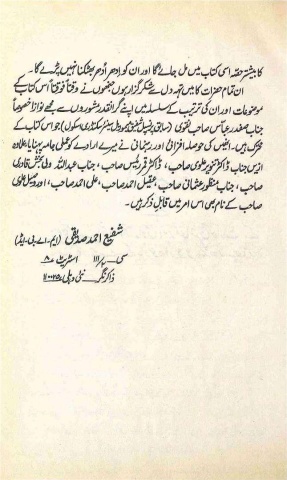 کا بیشتر حصّہ اسی کتاب میں مل جائے گا اور ان کو ادھر اُدھر بھٹکنا نہیں پڑے گا۔
ان تمام حضرات کا میں تہہ دل سے شکر گزار ہوں جنھوں نے وقتاً فوقتاً اس کتاب کے
موضوعات اور ان کی ترتیب کے سلسلہ میں اپنے گرانقدر مشوروں سے مجھے نوازا خصوصاً
جناب صفدر عباس صاحب نقوی (سابق پرنسپل شفیق میموریل سینئر سکنڈری اسکول) جو اس کتاب کے
محرّک ہیں۔ انھیں کی حوصلہ افزائی اور رہنمائی نے میرے ارادے کو عملی جامہ پہنایا، علاوہ
ازیں جناب ڈاکٹر تنویر علوی صاحب، ڈاکٹر قمر رئیس صاحب، جناب عبداللہ ولی بخش قادری
صاحب، جناب منظور عثمانی صاحب، عقیل احمد صاحب، علی احمد صاحب، اور جمیل علوی
صاحب کے نام بھی اس امر میں قابلِ ذکر ہیں۔
شفیع احمد صدیقی (ایم۔اے، بی۔ایڈ)
سی۔ ۱۱۱ اسٹریٹ ۸
ذاکر نگر نئی دہلی ۱۱۰۰۲۵